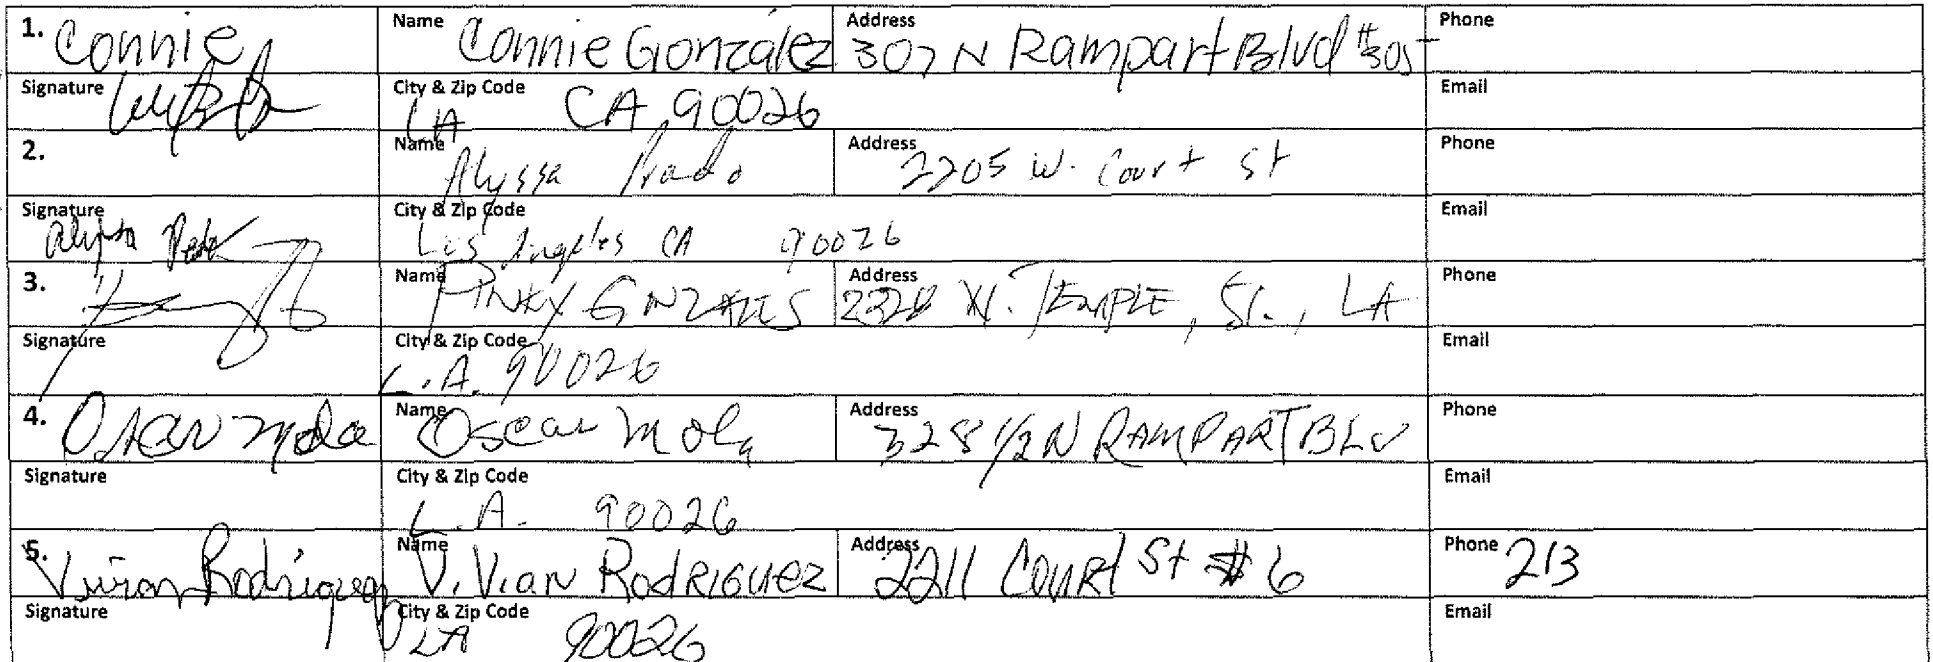 1. Connie Name Connie Gonzalez Address 307 N Rampart Blvd #305 Phone
Signature City & Zip Code LA CA 90026 Email
2. Name Alyssa Prado Address 2205 W. Court St Phone
Signature City & Zip Code Los Angeles CA 90026 Email
3. Name PINKY GNZALES Address 2328 W. TEMPLE, St., LA Phone
Signature City & Zip Code L.A. 90026 Email
4. Oscar Mola Name Oscar Mola Address 328 1/2 N RAMPART BLV Phone
Signature City & Zip Code L.A. 90026 Email
5. Vivian Rodriguez Name ViVian RodRiguez Address 2211 CouRt St #6 Phone 213
Signature City & Zip Code LA 90026 Email